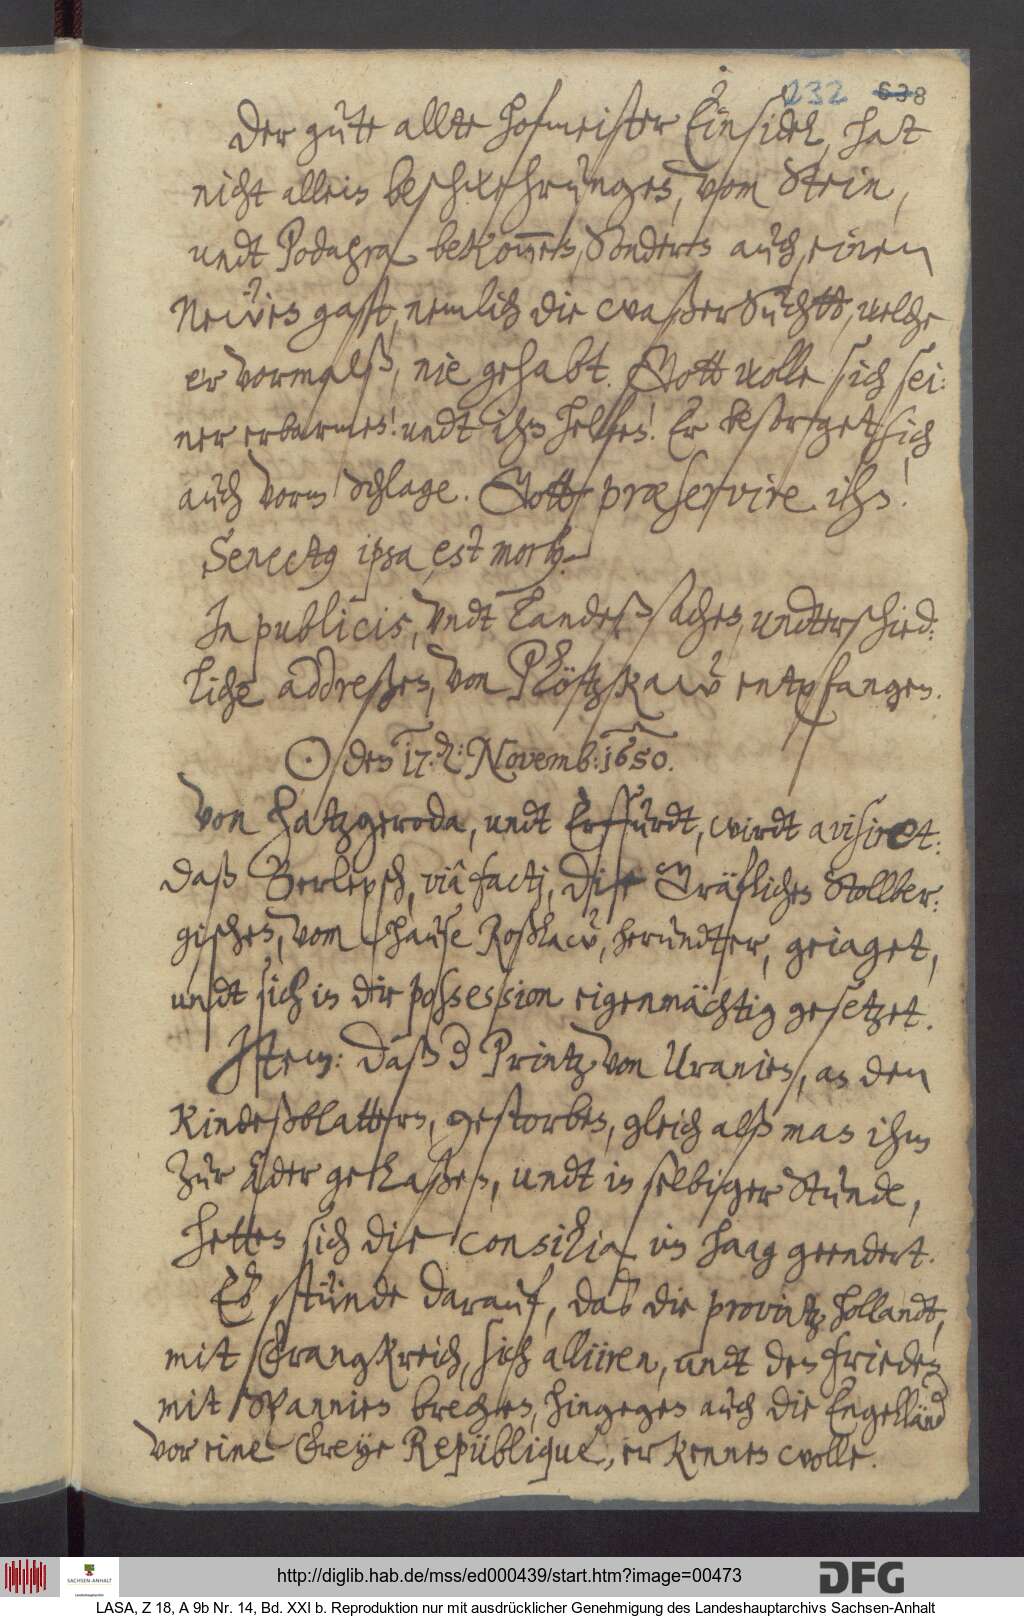 232 638
Der gute allte hofmeister Einsidel, hat
nicht allein beschwehrungen, vom Stein,
undt Podagra bekommen, Sondern auch, einen
Neuen gast, nemlich die waßer Suchtt, welche
er vormalß, nie gehabt. Gott wolle sich sei-
ner erbarmen! undt ihm helfen! Er besorget sich
auch vorm Schlage. Gott præservire ihn!
Senectus ipsa, est morbus.
In publicis, undt Landeßsachen, undterschied-
liche addreßen, von Plötzkaw entpfangen.
⊙ den 17. d: Novemb: 1650.
Von Hatzgeroda, undt Erffurdt, wirdt avisiret:
daß Berlepsch, viâ factj, die Gräflichen Stollber-
gischen, vom hause Roßlaw, herundter, geiaget,
undt sich in die possession eigenmächtig gesetzet.
Item: daß der Printz von Uranien, an den
Kindeßblattern, gestorben, gleich alß man ihm
zur Ader gelaßen, undt in selbiger Stunde,
hetten sich die consilia im Haag geendert.
Es stünde darauf, das die provintz hollandt,
mit Frangkreich, sich alliiren, undt den frieden
mit Spannien brechen, hingegen auch die Engelländ
vor eine Freye Republique, erkennen wolle.
http://diglib.hab.de/mss/ed000439/start.htm?image=00473
SACHSEN-ANHALT
DFG
LASA, Z 18, A 9b Nr. 14, Bd. XXI b. Reproduktion nur mit ausdrücklicher Genehmigung des Landeshauptarchivs Sachsen-Anhalt